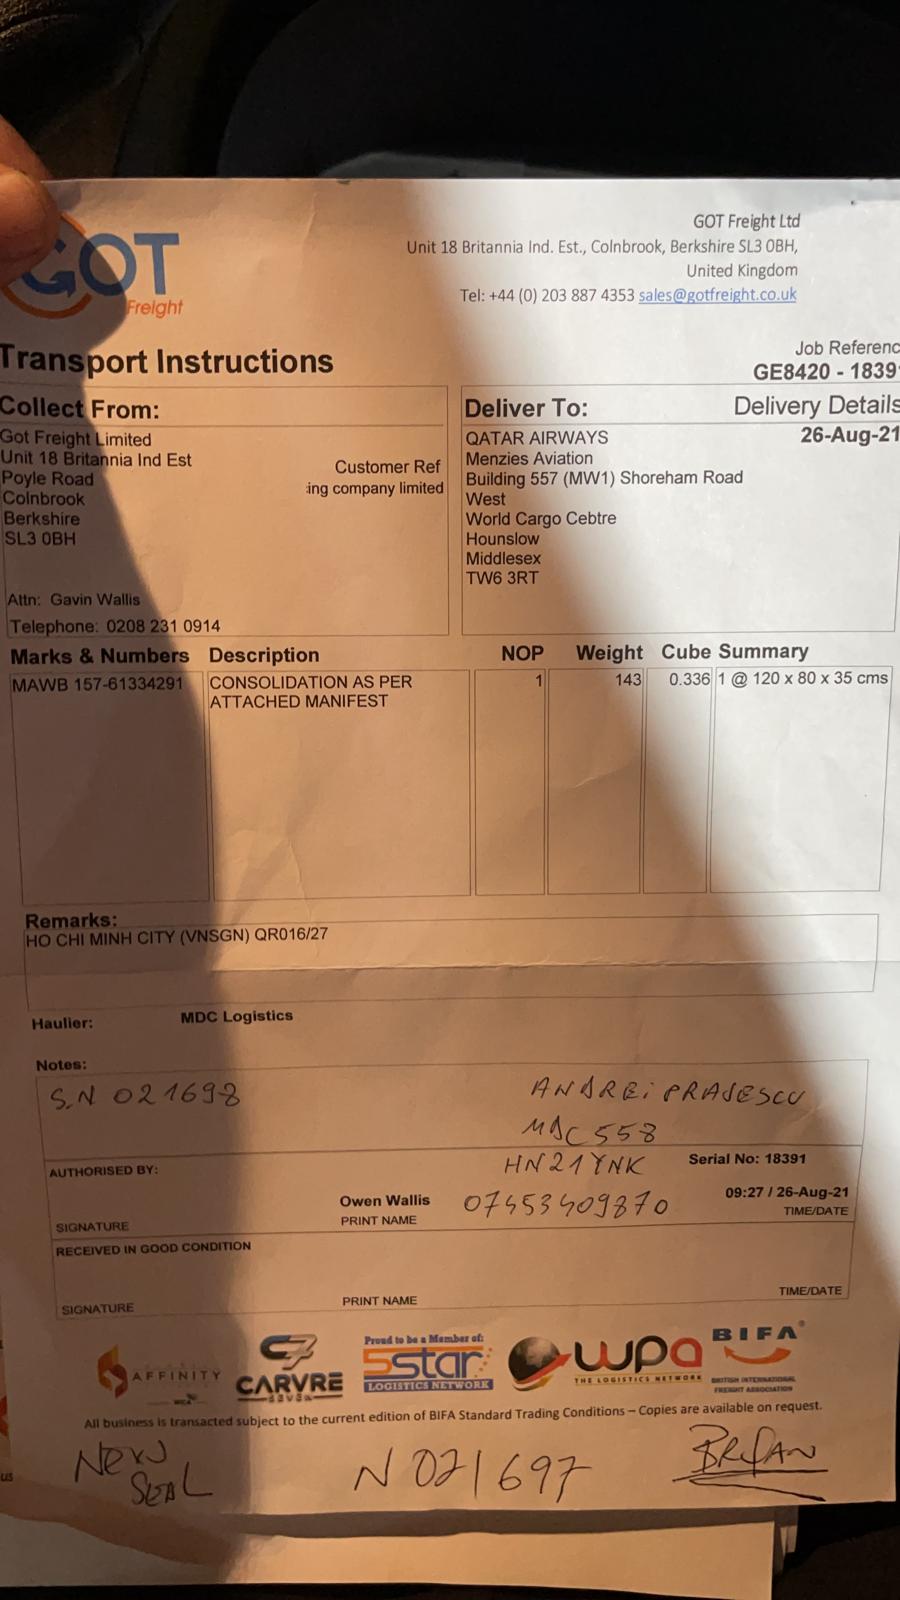 GOT
Freight
GOT Freight Ltd
Unit 18 Britannia Ind. Est., Colnbrook, Berkshire SL3 0BH,
United Kingdom
Tel: +44 (0) 203 887 4353 sales@gotfreight.co.uk
Transport Instructions
Job Referenc
GE8420 - 18391
Collect From:
Got Freight Limited
Unit 18 Britannia Ind Est
Poyle Road
Colnbrook
Berkshire
SL3 0BH
Customer Ref
ing company limited
Attn: Gavin Wallis
Telephone: 0208 231 0914
Deliver To:
Delivery Details
QATAR AIRWAYS
26-Aug-21
Menzies Aviation
Building 557 (MW1) Shoreham Road
West
World Cargo Cebtre
Hounslow
Middlesex
TW6 3RT
Marks & Numbers Description NOP Weight Cube Summary
MAWB 157-61334291 CONSOLIDATION AS PER 1 143 0.336 1 @ 120 x 80 x 35 cms
ATTACHED MANIFEST
Remarks:
HO CHI MINH CITY (VNSGN) QR016/27
Haulier: MDC Logistics
Notes:
S.N 021698
ANDREI PRAJESCU
MDC 558
HN21YNK
07453409870
AUTHORISED BY:
Serial No: 18391
Owen Wallis
09:27 / 26-Aug-21
SIGNATURE PRINT NAME TIME/DATE
RECEIVED IN GOOD CONDITION
SIGNATURE PRINT NAME TIME/DATE
AFFINITY
CARVRE
SEVEN
Proud to be a Member of:
5star
LOGISTICS NETWORK
wpa
THE LOGISTICS NETWORK
BIFA
BRITISH INTERNATIONAL
FREIGHT ASSOCIATION
All business is transacted subject to the current edition of BIFA Standard Trading Conditions – Copies are available on request.
NEW
SEAL
N 021697
us